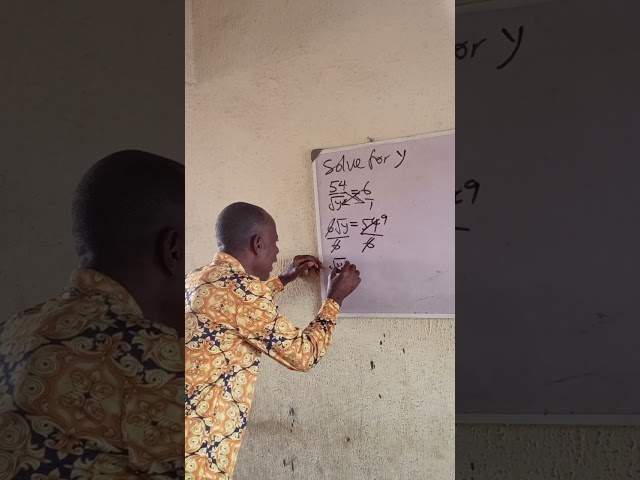 Solve for y
54/√y = 6/1
6√y/6 = 54 9/6
√y